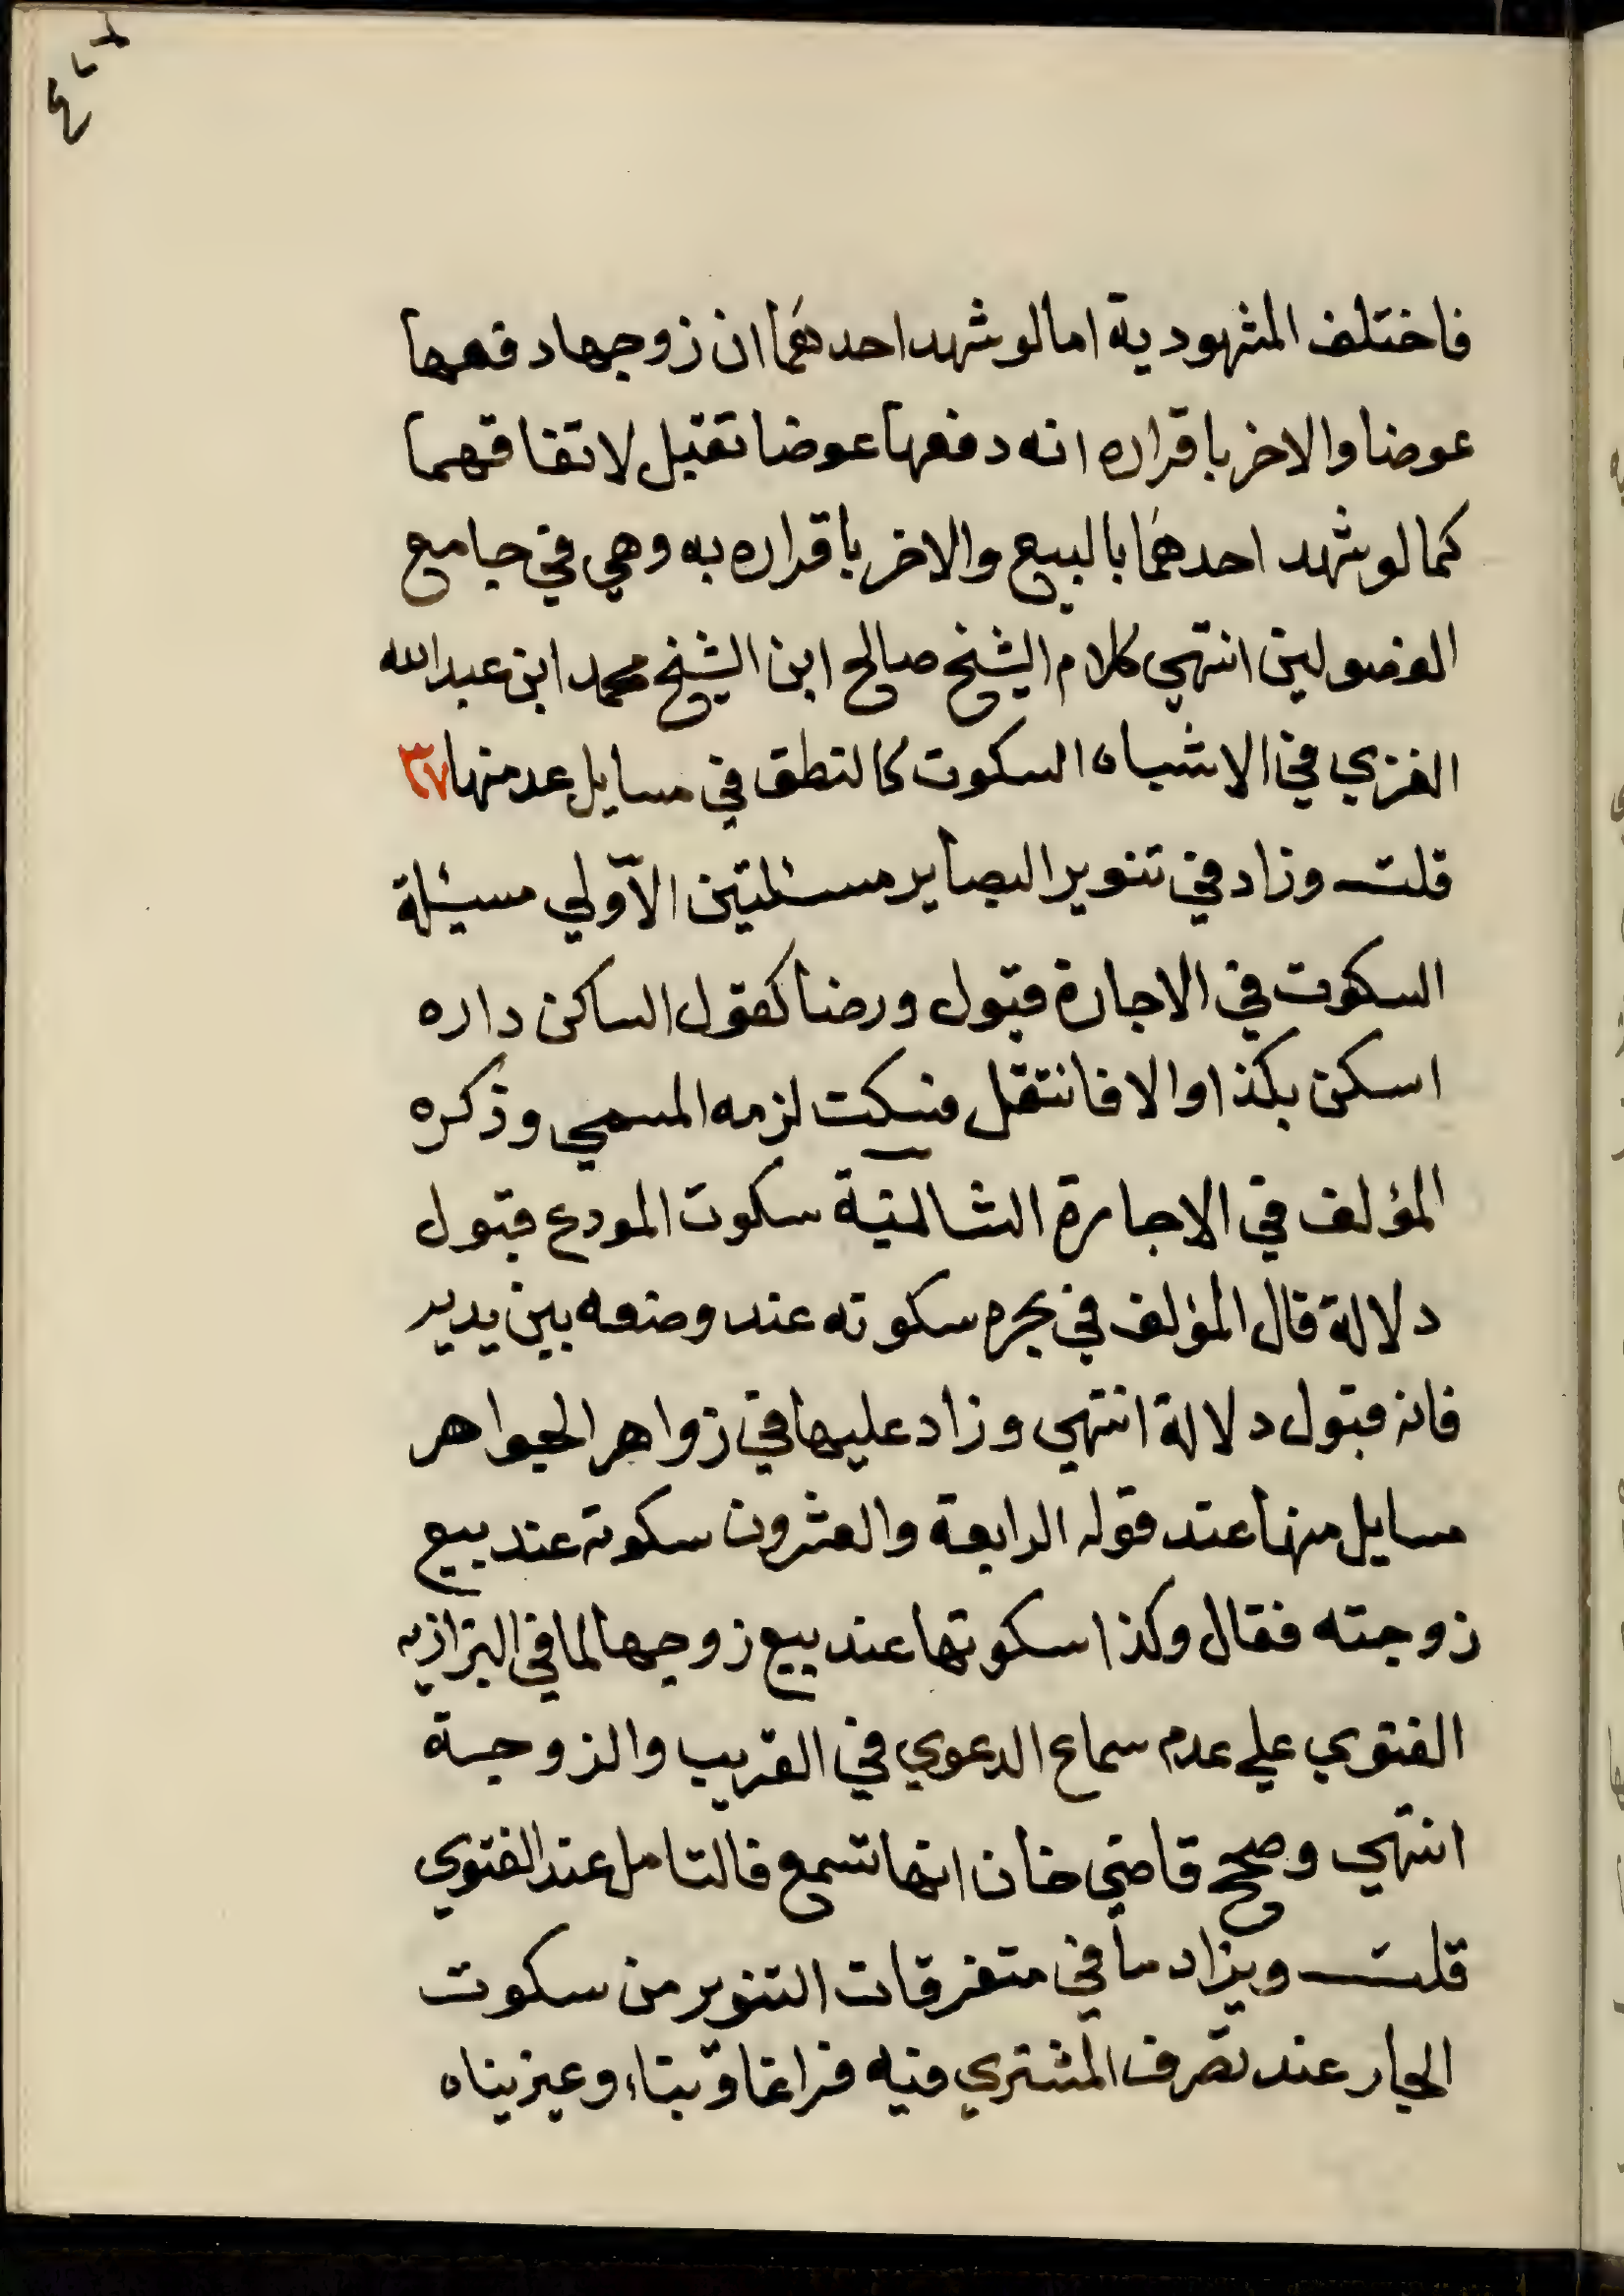 فاختلف المشهود به اما لو شهد احدهما ان زوجها دفعها
عوضا والاخر باقراره انه دفعها عوضا تقبل لاتفاقهما
كما لو شهد احدهما بالبيع والاخر باقراره به وهي في جامع
الفصولين انتهي كلام الشيخ صالح ابن الشيخ محمد ابن عبدالله
الغزي في الاشباه السكوت كالنطق في مسايل عد منها ٣٧
قلت وزاد في تنوير البصاير مسئلتين الاولي مسيئلة
السكوت في الاجارة قبول ورضا كقول الساكن داره
اسكن بكذا والا فانتقل فسكت لزمه المسمي وذكره
المؤلف في الاجارة الثانية سكوت المودع قبول
دلالة قال المؤلف في بحره سكوته عند وضعه بين يديه
فانه قبول دلالة انتهي وزاد عليها في زواهر الجواهر
مسايل منها عند قوله الرابعة والعشرون سكوته عند بيع
زوجته فقال وكذا سكوتها عند بيع زوجها لما في البزازيه
الفتوي علي عدم سماع الدعوي في القريب والزوجة
انتهي وصحح قاضي خان انها تسمع فالتامل عند الفتوي
قلت ويزاد ما في متفرقات التنوير من سكوت
الجار عند تصرف المشتري فيه فراغا وبناء وعيزيناه